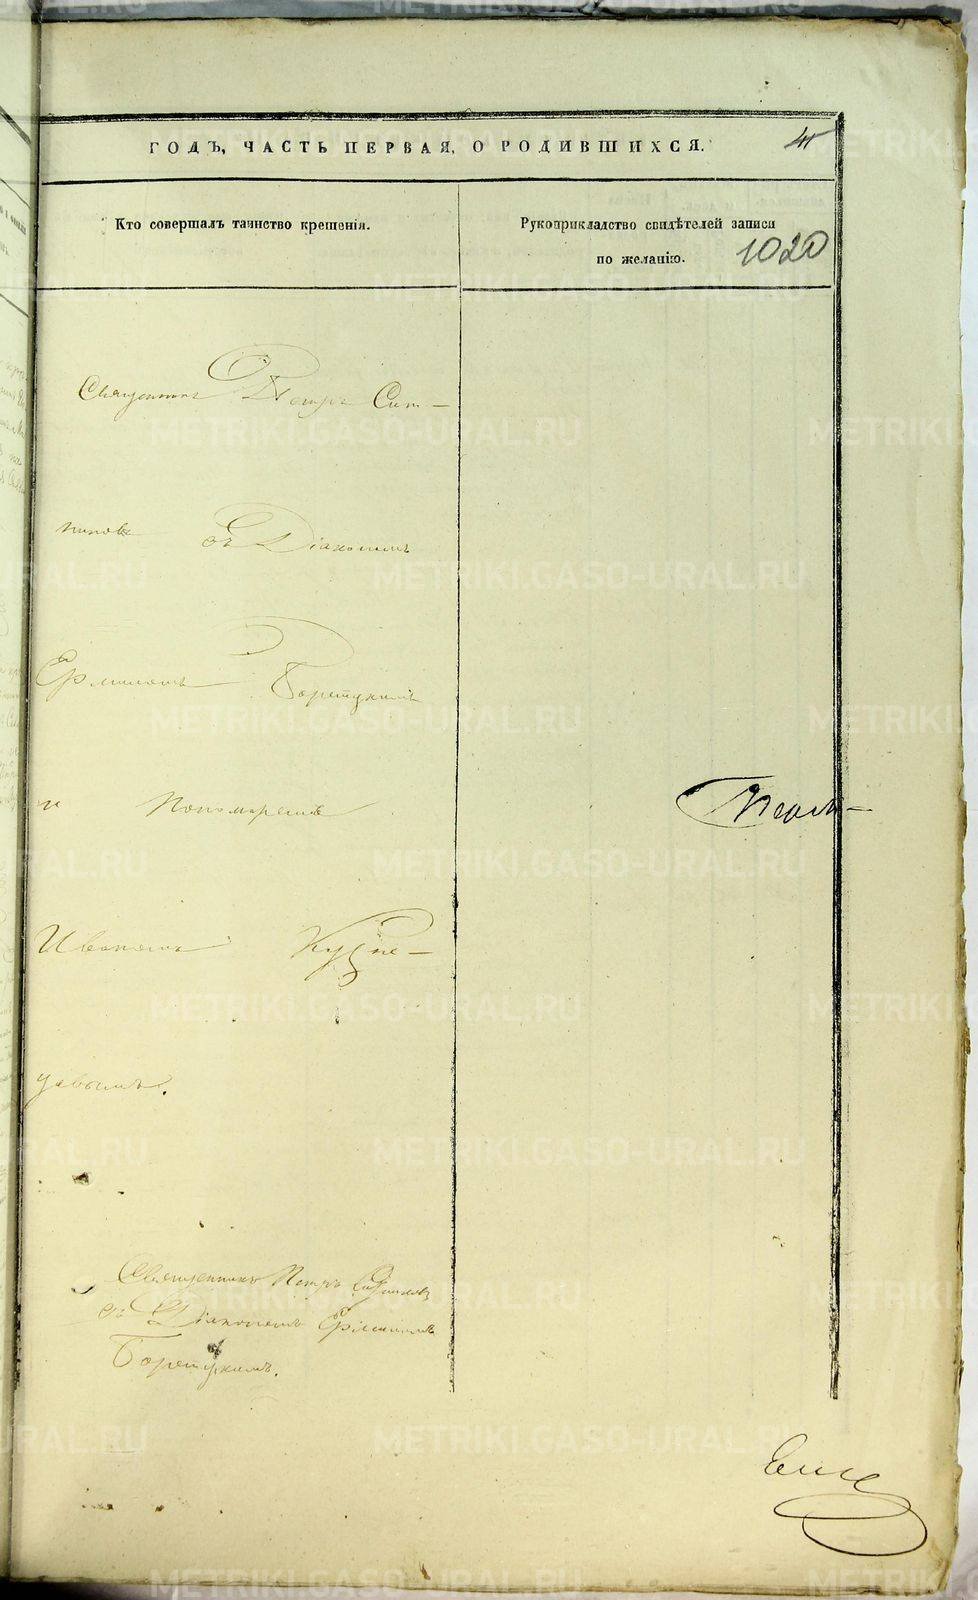 ГОДЪ, ЧАСТЬ ПЕРВАЯ, О РОДИВШИХСЯ.
Кто совершалъ таинство крещенія.
Рукоприкладство свидѣтелей записи
по желанію.
1020
Священникъ Петръ Сит-
никовъ съ Діакономъ
Ермиломъ Борецкимъ
и Пономаремъ
Иваномъ Кузне-
цовымъ.
Священникъ Петръ Ситниковъ
съ Діакономъ Ермиломъ
Борецкимъ.
METRIKI.GASO-URAL.RU